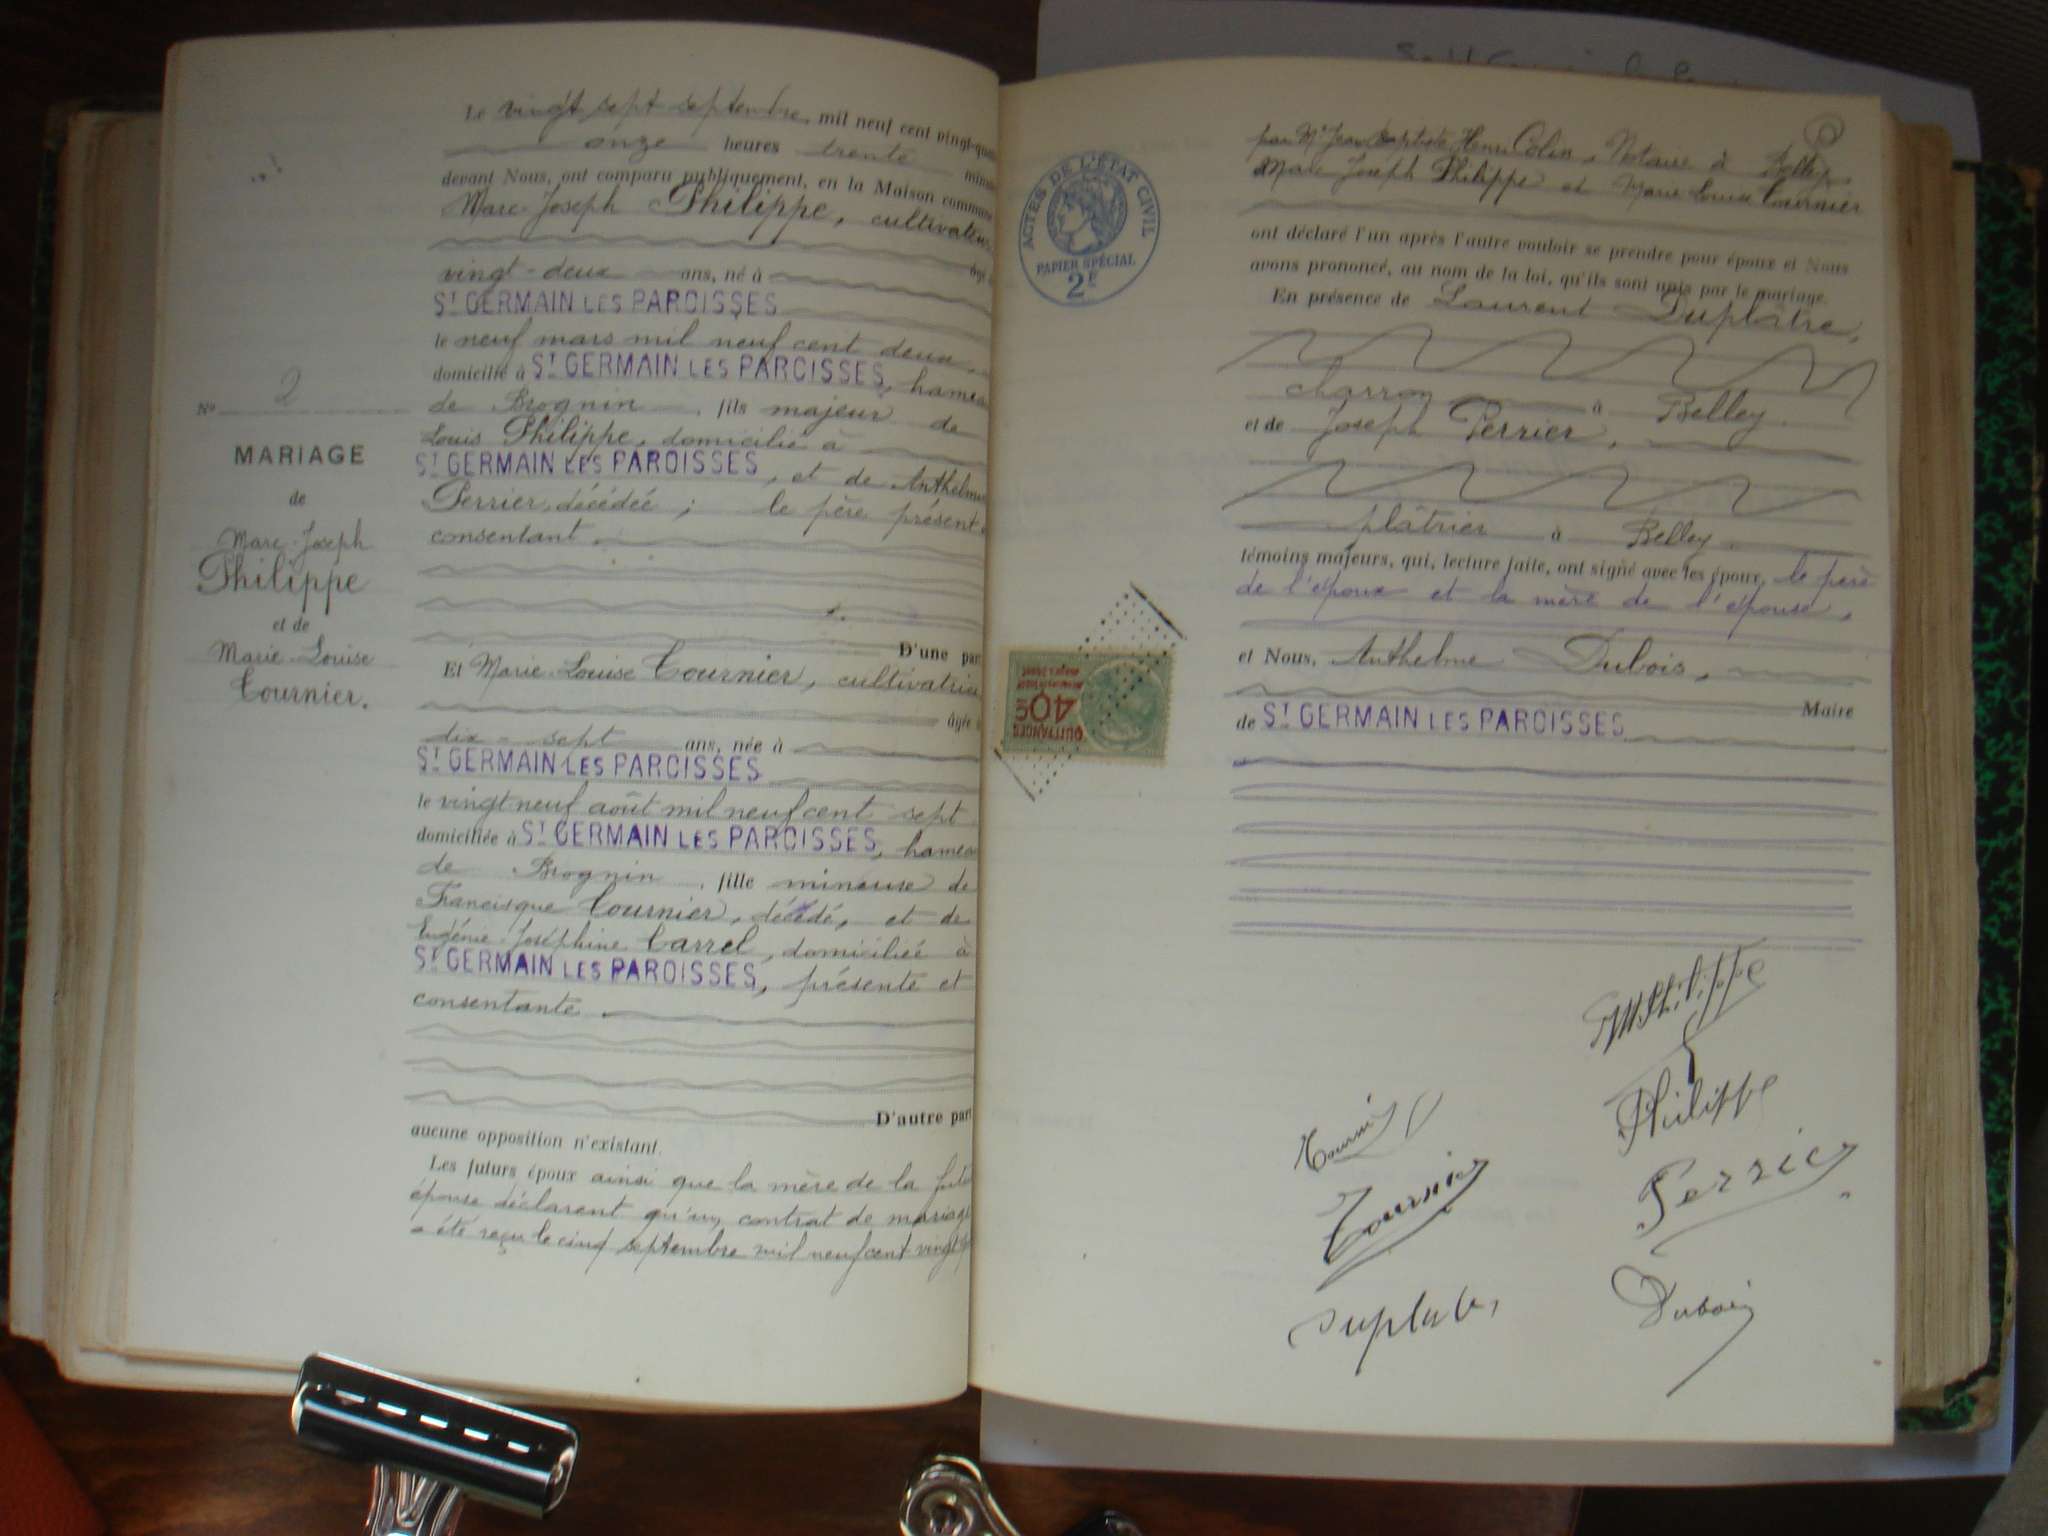 Le vingt sept septembre, mil neuf cent vingt-quat
onze heures trente minu
devant Nous, ont comparu publiquement, en la Maison commune
Marc Joseph Philippe, cultivateur
âgé
vingt-deux ans, né à
ST GERMAIN LES PAROISSES
le neuf mars mil neuf cent deux,
domicilié à ST GERMAIN LES PAROISSES, hamea
de Brognin, fils majeur de
Louis Philippe, domicilié à
ST GERMAIN LES PAROISSES, et de Anthelme
Perrier, décédée ; le père présent
consentant.
D'une par
Et Marie Louise Tournier, cultivatrice
âgée
dix-sept ans, née à
ST GERMAIN LES PAROISSES
le vingt neuf août mil neuf cent sept
domiciliée à ST GERMAIN LES PAROISSES, hamea
de Brognin, fille mineure de
Francisque Tournier, décédé, et de
Eugénie Joséphine Carrel, domiciliée à
ST GERMAIN LES PAROISSES, présente et
consentante.
D'autre part
aucune opposition n'existant.
Les futurs époux ainsi que la mère de la futu
épouse déclarent qu'un contrat de mariage
a été reçu le cinq septembre mil neuf cent vingt
No 2
MARIAGE
de
Marc Joseph
Philippe
et de
Marie Louise
Tournier.
par Me Jean Baptiste Henri Colin, Notaire à Belley.
Marc Joseph Philippe et Marie Louise Tournier
ont déclaré l'un après l'autre vouloir se prendre pour époux et Nous
avons prononcé, au nom de la loi, qu'ils sont unis par le mariage.
En présence de Laurent Duplâtre,
charron à Belley.
et de Joseph Perrier,
plâtrier à Belley.
témoins majeurs, qui, lecture faite, ont signé avec les époux, le père
de l'époux et la mère de l'épouse,
et Nous, Anthelme Dubois,
Maire
de ST GERMAIN LES PAROISSES
ACTES DE L'ÉTAT CIVIL
PAPIER SPÉCIAL
2F
QUITTANCES
40c
M Philippe
Philippe
Tournier
Tournier
Perrier
Duplatre
Dubois